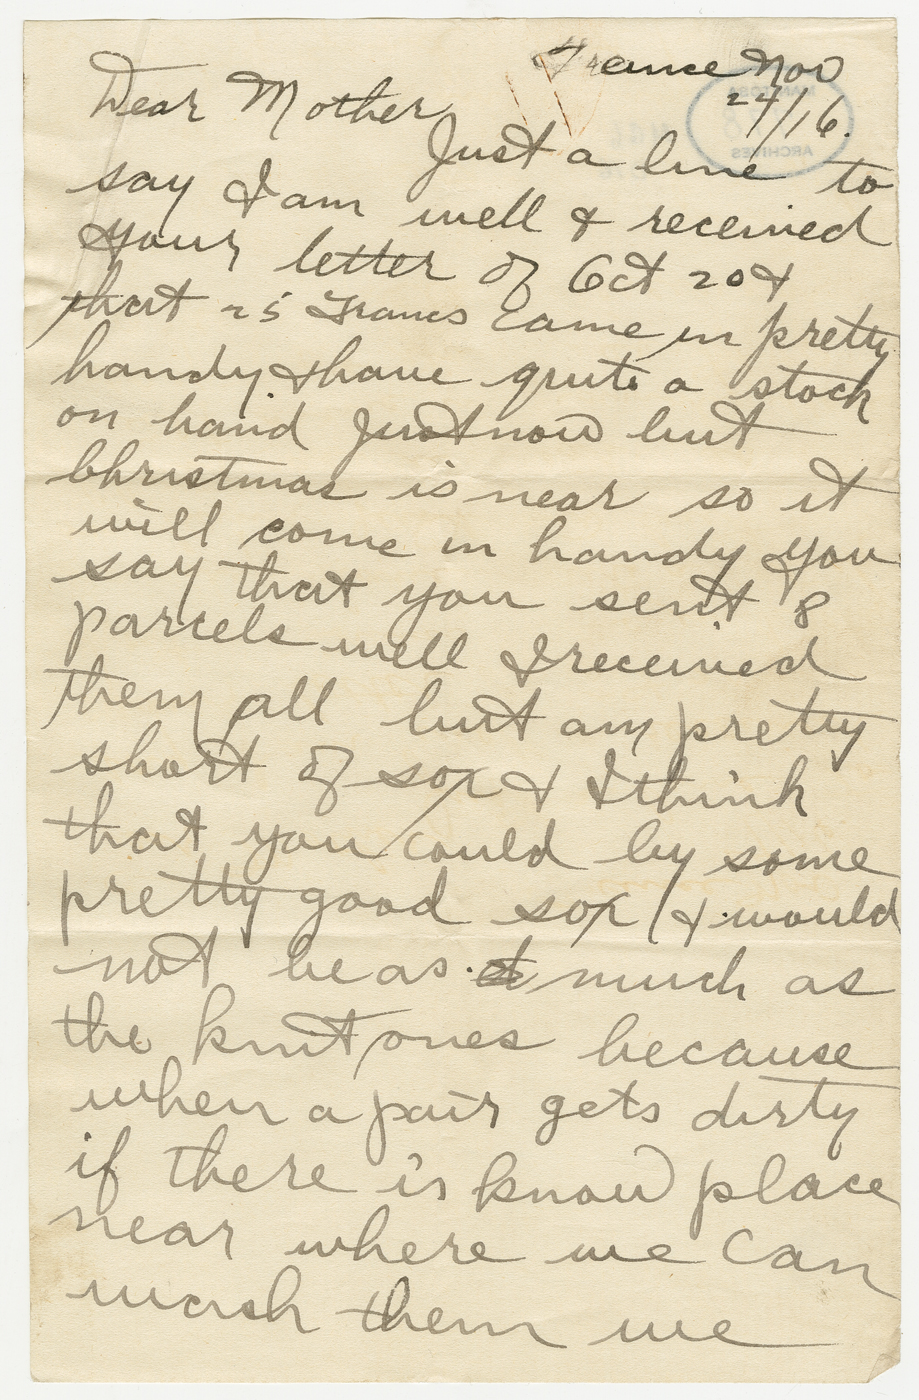 France Nov
24/16.
Dear Mother
Just a line to
say I am well & received
your letter of Oct 20 &
that 25 Francs came in pretty
handy & have quite a stock
on hand just now but
Christmas is near so it
will come in handy you
say that you sent 8
parcels well I received
them all but am pretty
short of sox & I think
that you could by some
pretty good sox & would
not be as much as
the knit ones because
when a pair gets dirty
if there is know place
near where we can
wash them we
MANITOBA
ARCHIVES